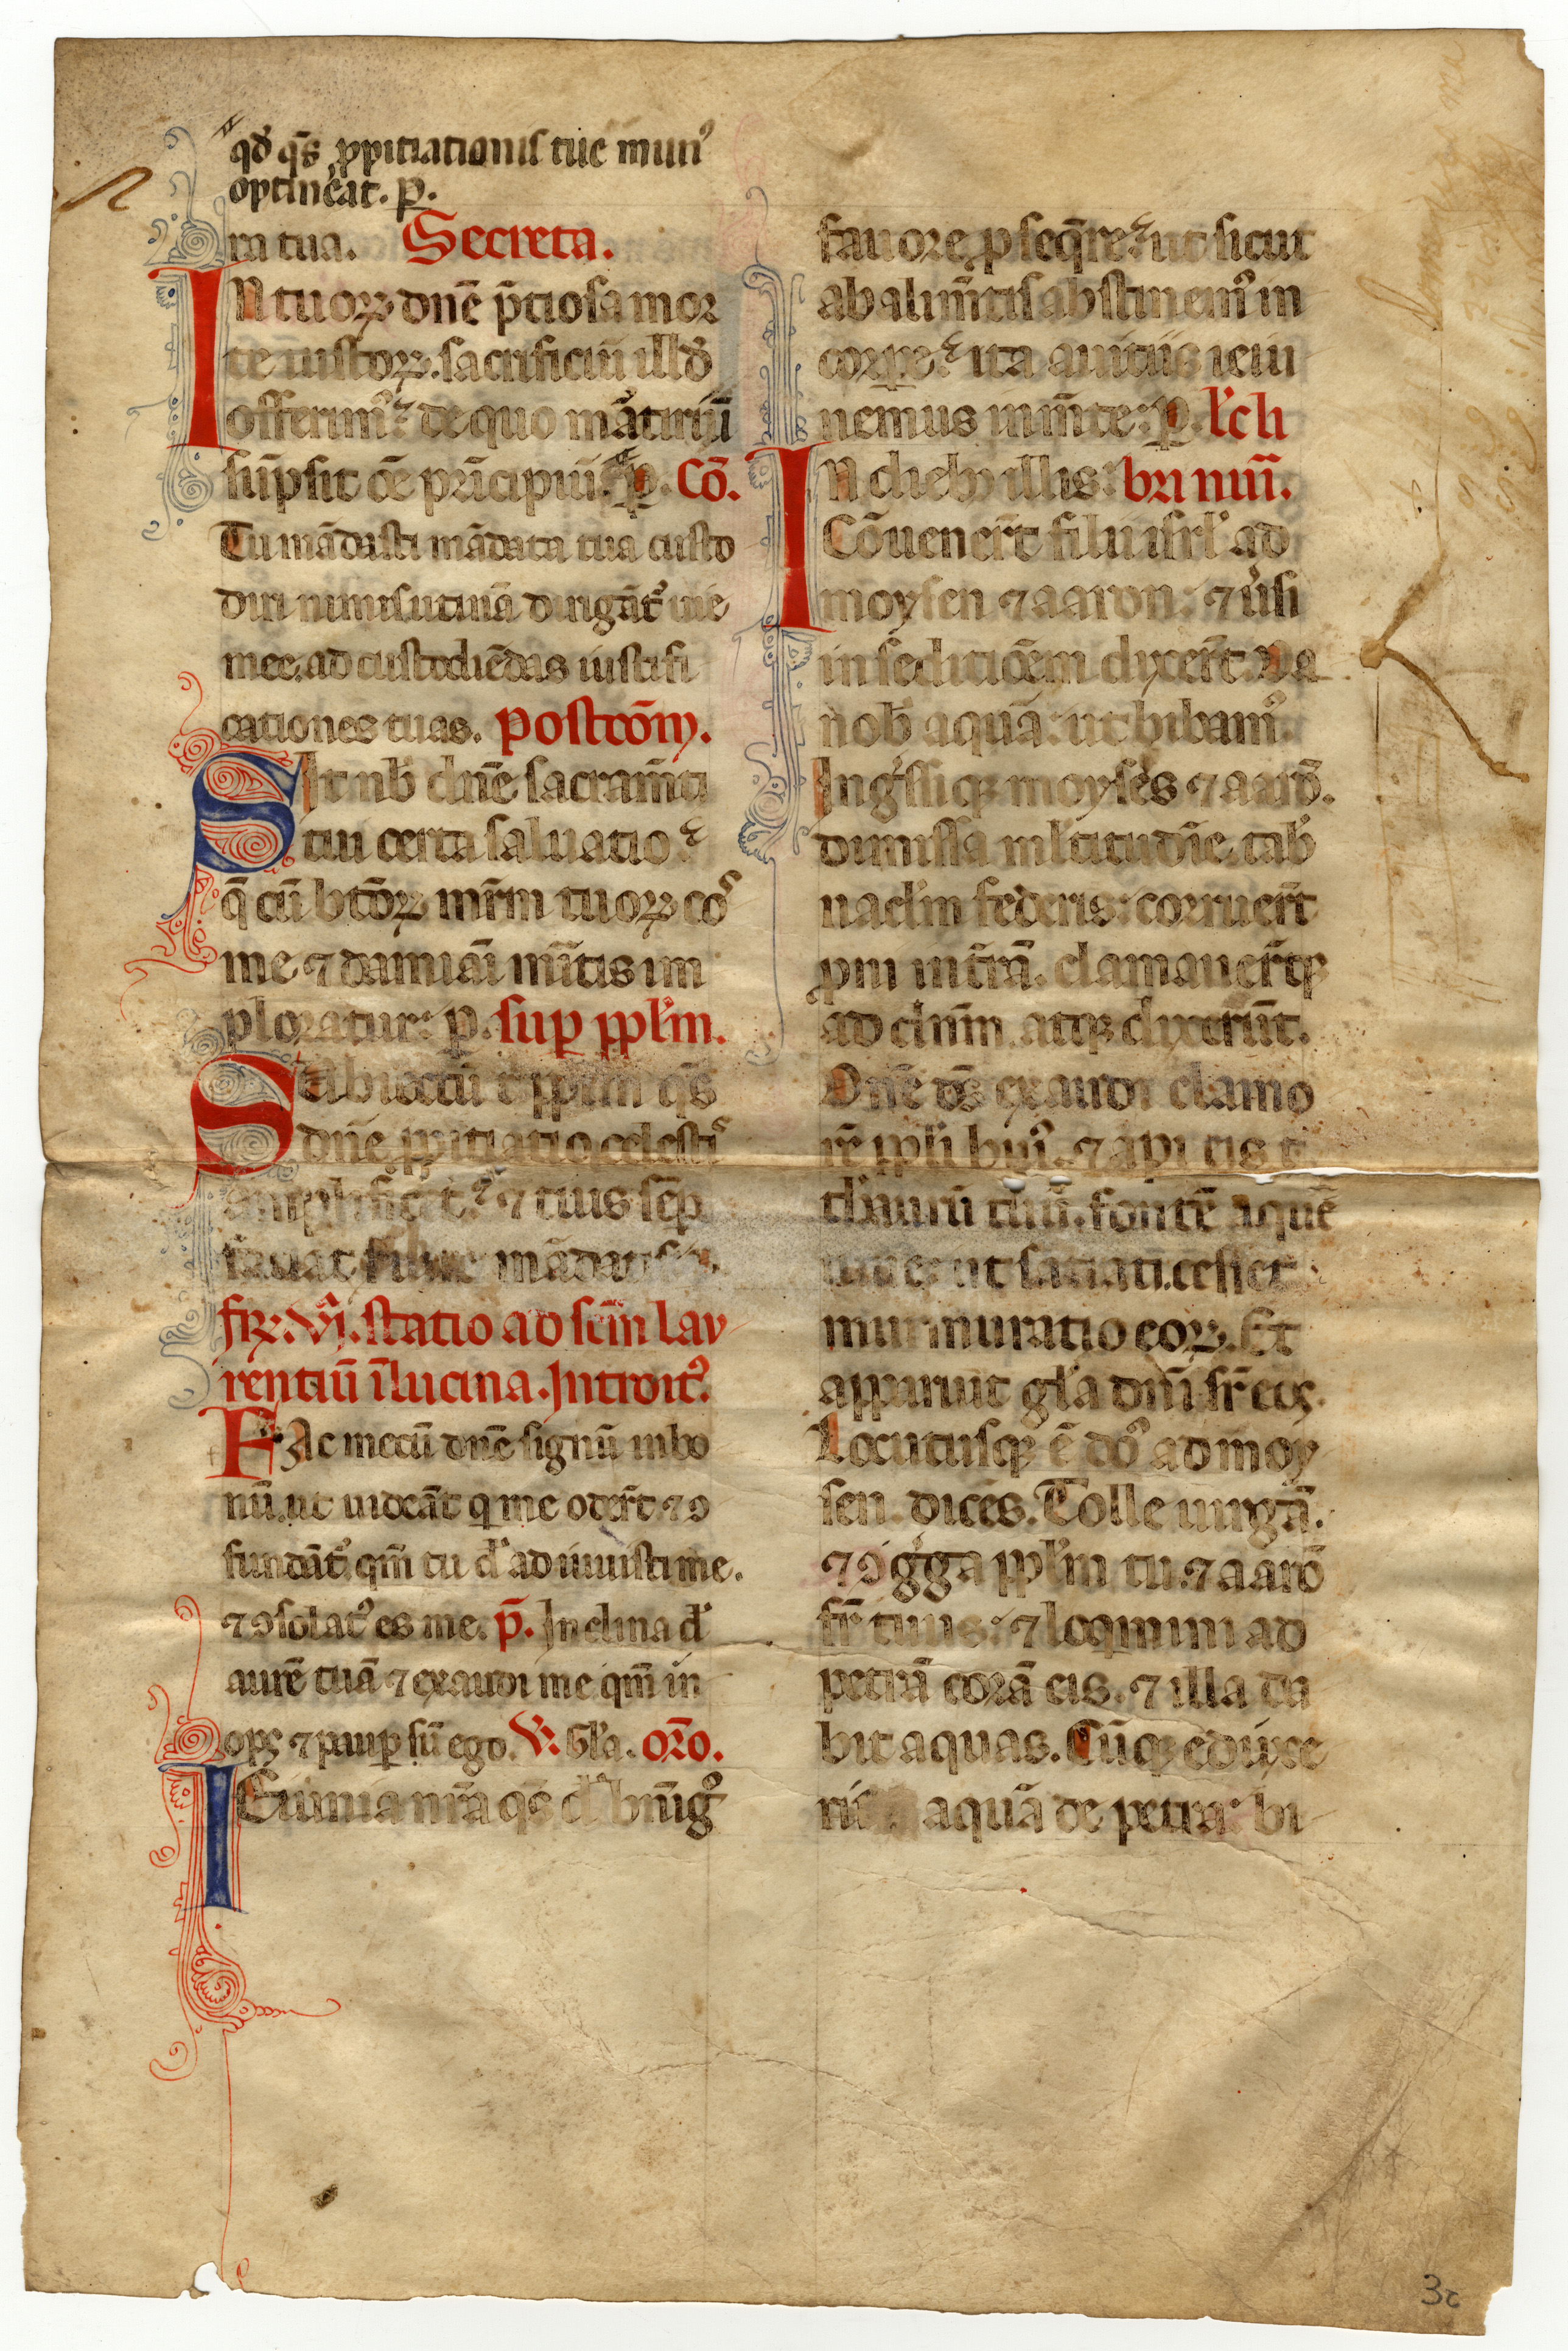 qd̄ q̄s p̱pitiationis tue mun᷒
optineat. p̱.
ra tua. Secreta.
IN tuoꝝ dn̄e p̄tiosa mor
te iustoꝝ. sacrificiū illd̄
offerim᷒ de quo mātiriū
sūpsit oē prīcipiū. p̱. Cō.
Tu mādasti mādata tua custo
diri nimis utinā dirigāt᷒ uie
mee. ad custodiēdas iustifi
cationes tuas. Postcōm̄.
SIt nob̄ dn̄e sacram̄ti
tui certa saluatio
q̄ cū btōꝝ mr̄m tuoꝝ cos
me ⁊ damiāi mītis im
ploratur: p̱. sup̱ pplm̄.
SUbiectū t̄ pplm̄ q̄s
dn̄e ppitiatio celestis
amplificet ⁊ tuis sēp̱
faciat mādatis
fr̄ꝫ. vj. statio ad scm̄ lau
rentiū ī lucina. Introit᷒.
FAc mecū dn̄e signū in bo
nū. ut uideāt q̇ me oder̄t ⁊ ꝯ
fundāt᷒ qm̄ tu d̄ adiuuisti me.
⁊ ꝯsolat᷒ es me. p̄. Inclina d̄
aurē tuā ⁊ exaudi me qm̄ in
ops ⁊ paup̱ sū ego. V̄. Gl̄a. Orō.
IEiunia nr̄a q̄s d̄ bnīg᷒
fauore p̱seq̄re ut sicut
ab alim̄tis abstinem᷒ in
corpe ita a uitiis ieiu
nemus in m̄te: p̱. l̄c̄ li
IN dieb᷒ illis: bri nūi.
Cōuener̄t filii isrl̄ ad
moysen ⁊ aaron: ⁊ u̇si
in seditiōem dixer̄t. Da
nob̄ aquā: ut bibam᷒.
Ing̓ssiqꝫ moyses ⁊ aarō.
dimissa ml̄titudīe. tab̄
naclm̄ federis: corruer̄t
p̱ni in t̄rā. clamauer̄tqꝫ
ad dn̄m. atqꝫ dixerūt.
Dn̄e ds̄ exaudi clamo
rē ppli hui᷒. ⁊ api eis t
thaurū tuū. fontē aque
uiue: ut satiati. cesset
murmuratio eoꝝ. Et
apparuit gl̄a dn̄i sr̄ eos.
Locutusqꝫ ē dn̄s ad moy
sen. dices. Tolle uirgā.
⁊ ꝯg̓ga pplm̄ tu. ⁊ aarō
fr̄ tuus: ⁊ loq̇mini ad
petrā corā eis. ⁊ illa da
bit aquas. Cūqꝫ eduxe
ris aquā de petra: bi
3c